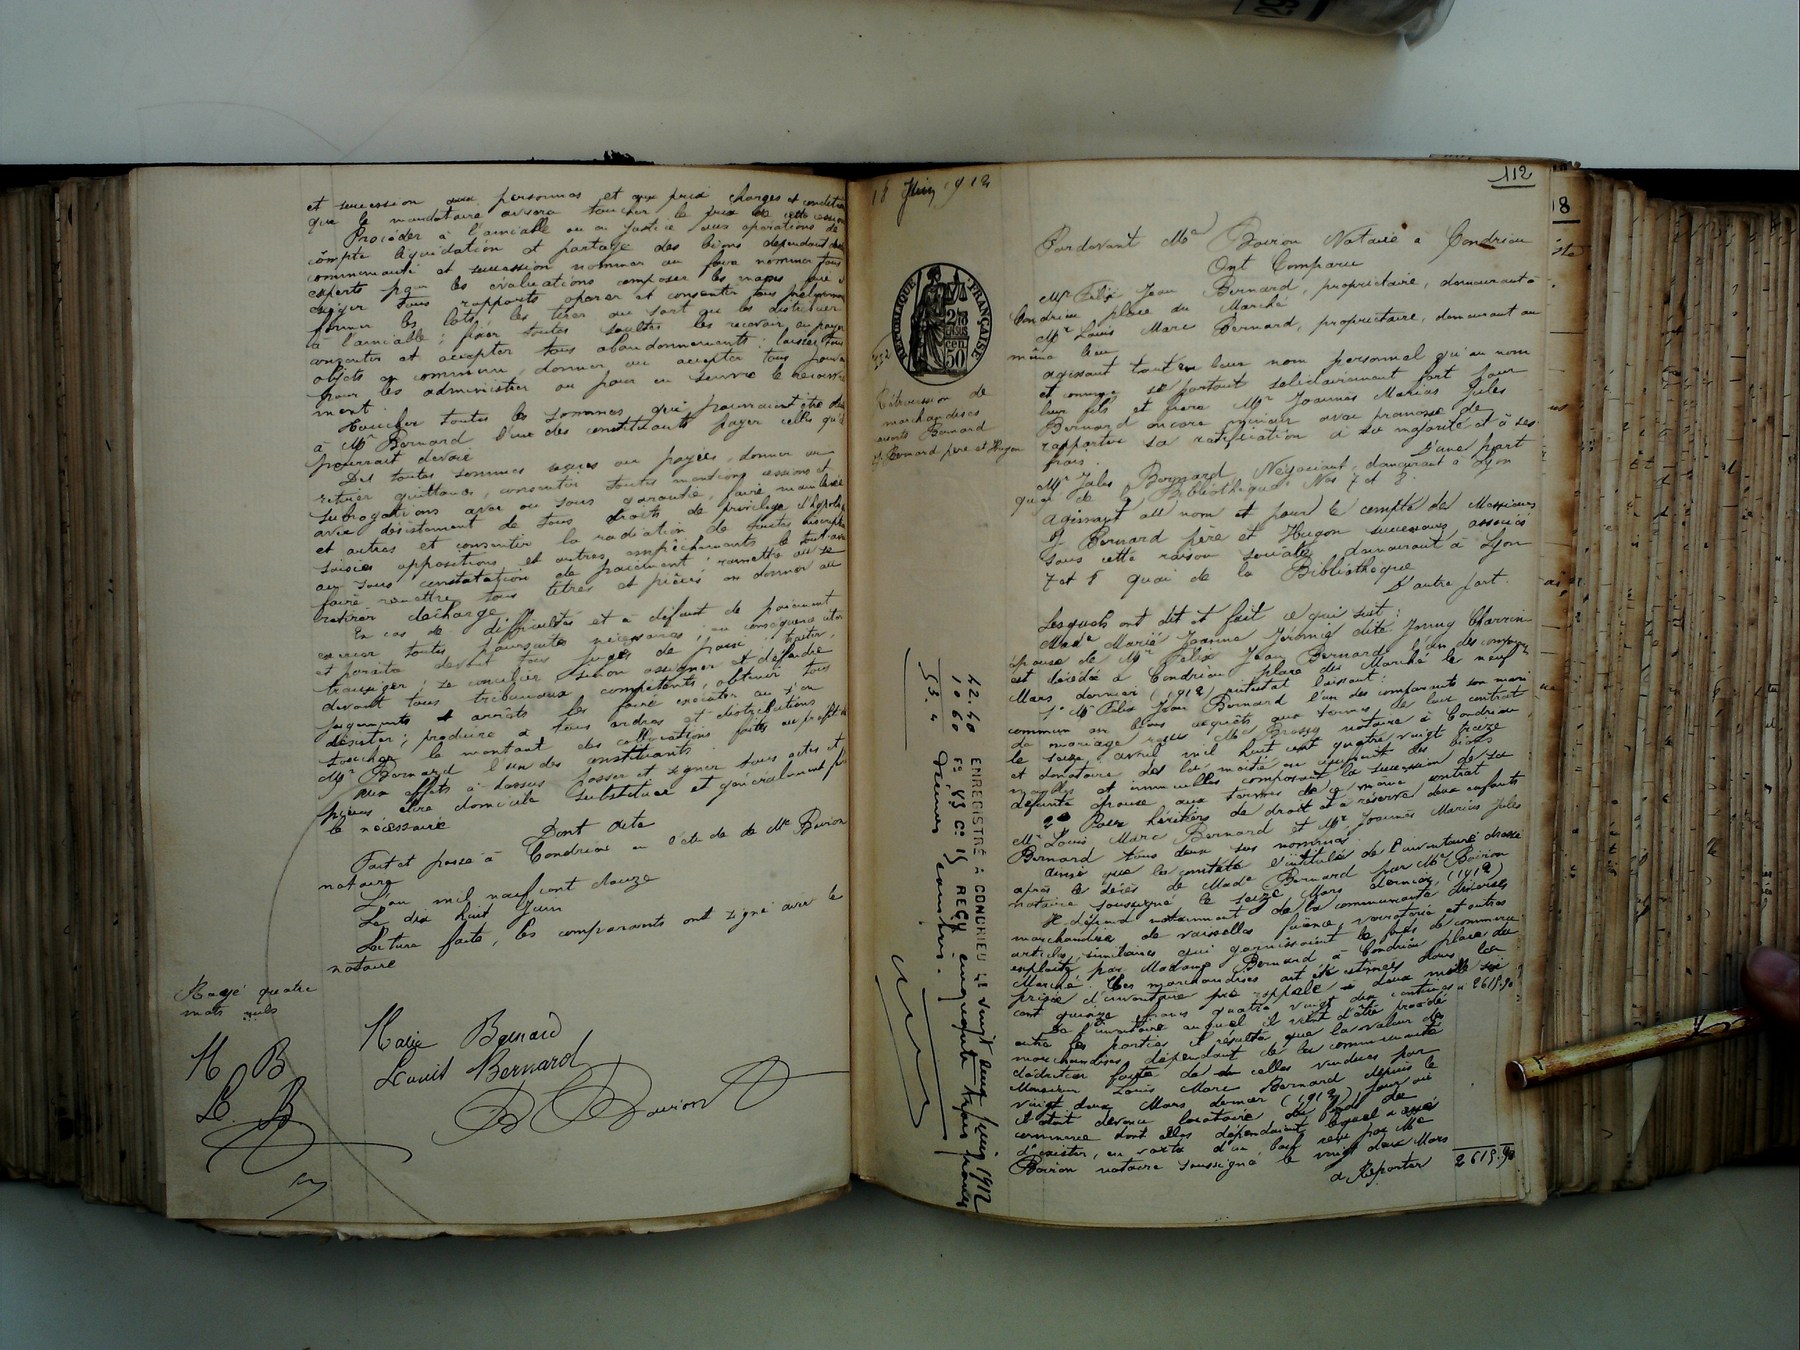 et succession aux personnes et aux prix charges et conditions
que le mandataire avisera toucher le prix de cette cession
Procéder à l'amiable ou en justice sous opérations de
compte liquidation et partage des biens dépendant des
communauté et succession nommer ou faire nommer tous
experts pour les évaluations composer les masses
exiger tous rapports opérer et consentir tous prélèvements
former les lots, les tirer au sort ou les distribuer
à l'amiable ; fixer toutes soultes les recevoir ou payer
consentir et accepter tous abandonnements ; laisser tous
objets en commun, donner ou accepter tous pouvoirs
pour les administrer ou pour en suivre le recouvre
ment.
Toucher toutes les sommes qui pourraient être dues
à Mr Bernard l'un des constituants payer celles qu'il
pourrait devoir
De toutes sommes reçues ou payées, donner ou
retirer quittances, consentir toutes mentions cessions et
subrogations avec ou sans garantie, faire main levée
avec désistement de tous droits de privilège d'hypothèque
et autres et consentir la radiation de toutes inscriptions
saisies oppositions et autres empêchements le tout avec
ou sans constatation de paiement ; remettre ou se
faire remettre tous titres et pièces en donner ou
retirer décharge
En cas de difficultés et à défaut de paiement
exercer toutes poursuites nécessaires ; en conséquence citer
et paraître devant tous juges de paix ; traiter,
transiger ; se concilier sinon assigner et défendre
devant tous tribunaux compétents, obtenir tous
jugements et arrêts les faire exécuter ou s'en
désister ; produire à tous ordres et distributions
toucher le montant des collocations faites au profit de
Mr Bernard l'un des constituants
Aux effets ci dessus passer et signer tous actes et
pièces élire domicile substituer et généralement faire
le nécessaire
Dont acte
Fait et passé à Condrieu en l'étude de Me Boiron
notaire
L'an mil neuf cent douze
Le dix huit Juin
Lecture faite, les comparants ont signé avec le
notaire
Rayé quatre
mots nuls
M B
L. B
Marie Bernard
Louis Bernard
Boiron
112
18
18 Juin 1912
RÉPUBLIQUE FRANÇAISE
2 50
Rétrocession de
marchandises
consorts Bernard
Bernard père et Hugon
Pardevant Me Boiron Notaire à Condrieu
Ont Comparu
Mr Félix Jean Bernard, propriétaire, demeurant à
Condrieu place du Marché
Mr Louis Marc Bernard, propriétaire, demeurant au
même lieu
agissant tant en leur nom personnel qu'au nom
et comme se portant solidairement fort pour
leur fils et frère Mr Joannes Marius Jules
Bernard encore mineur avec promesse de
rapporter sa ratification à sa majorité et à ses
frais.
D'une part
Mr Jules Bernard, Négociant, demeurant à Lyon
quai de la Bibliothèque Nos 7 et 8.
agissant au nom et pour le compte de Messieurs
J. Bernard père et Hugon successeurs associés
sous cette raison sociale, demeurant à Lyon
7 et 8 quai de la Bibliothèque
D'autre part.
Lesquels ont dit et fait ce qui suit :
Made Marie Jeanne Jéromie dite Jenny
épouse de Mr Félix Jean Bernard l'un des comparants
est décédée à Condrieu place du Marché le neuf
Mars dernier (1912) intestat laissant :
1° Mr Félix Jean Bernard l'un des comparants son mari
commun en biens acquêts aux termes de leur contrat
de mariage reçu Me Brossy notaire à Condrieu
le seize avril mil huit cent quatre vingt treize
et donataire de la moitié en usufruit des biens
meubles et immeubles composant la succession de sa
défunte épouse aux termes de ce même contrat
2° Pour héritiers de droit et à réserve deux enfants
Mr Louis Marc Bernard et Mr Joannes Marius Jules
Bernard tous deux sus nommés
Ainsi que le constate l'intitulé de l'inventaire dressé
après le décès de Made Bernard par Me Boiron
notaire soussigné le seize Mars dernier (1912)
Il dépend notamment de la communauté diverses
marchandises de vaisselles faïence, verroterie et autres
articles similaires qui garnissaient le fonds de commerce
exploité par Madame Bernard à Condrieu place du
Marché. Ces marchandises ont été estimées dans la
prisée d'inventaire pré rappelé à deux mille six
cent quinze francs quatre vingt dix centimes ci 2615.90
De l'inventaire auquel il vient d'être procédé
entre les parties il résulte que la valeur des
marchandises dépendant de la communauté
déduction faite de celles vendues par
Monsieur Louis Marc Bernard depuis le
vingt deux Mars dernier (1912) jour où
il était devenu locataire du fonds de
commerce dont elles dépendaient lequel a cessé
d'exister, en vertu d'un bail reçu par Me
Boiron notaire soussigné le vingt deux Mars
à Reporter 2615.90
ENREGISTRÉ A CONDRIEU Le vingt cinq Juin 1912
Fo 43 Co 15 REÇU cinquante trois francs
42.40
10 60
53. "